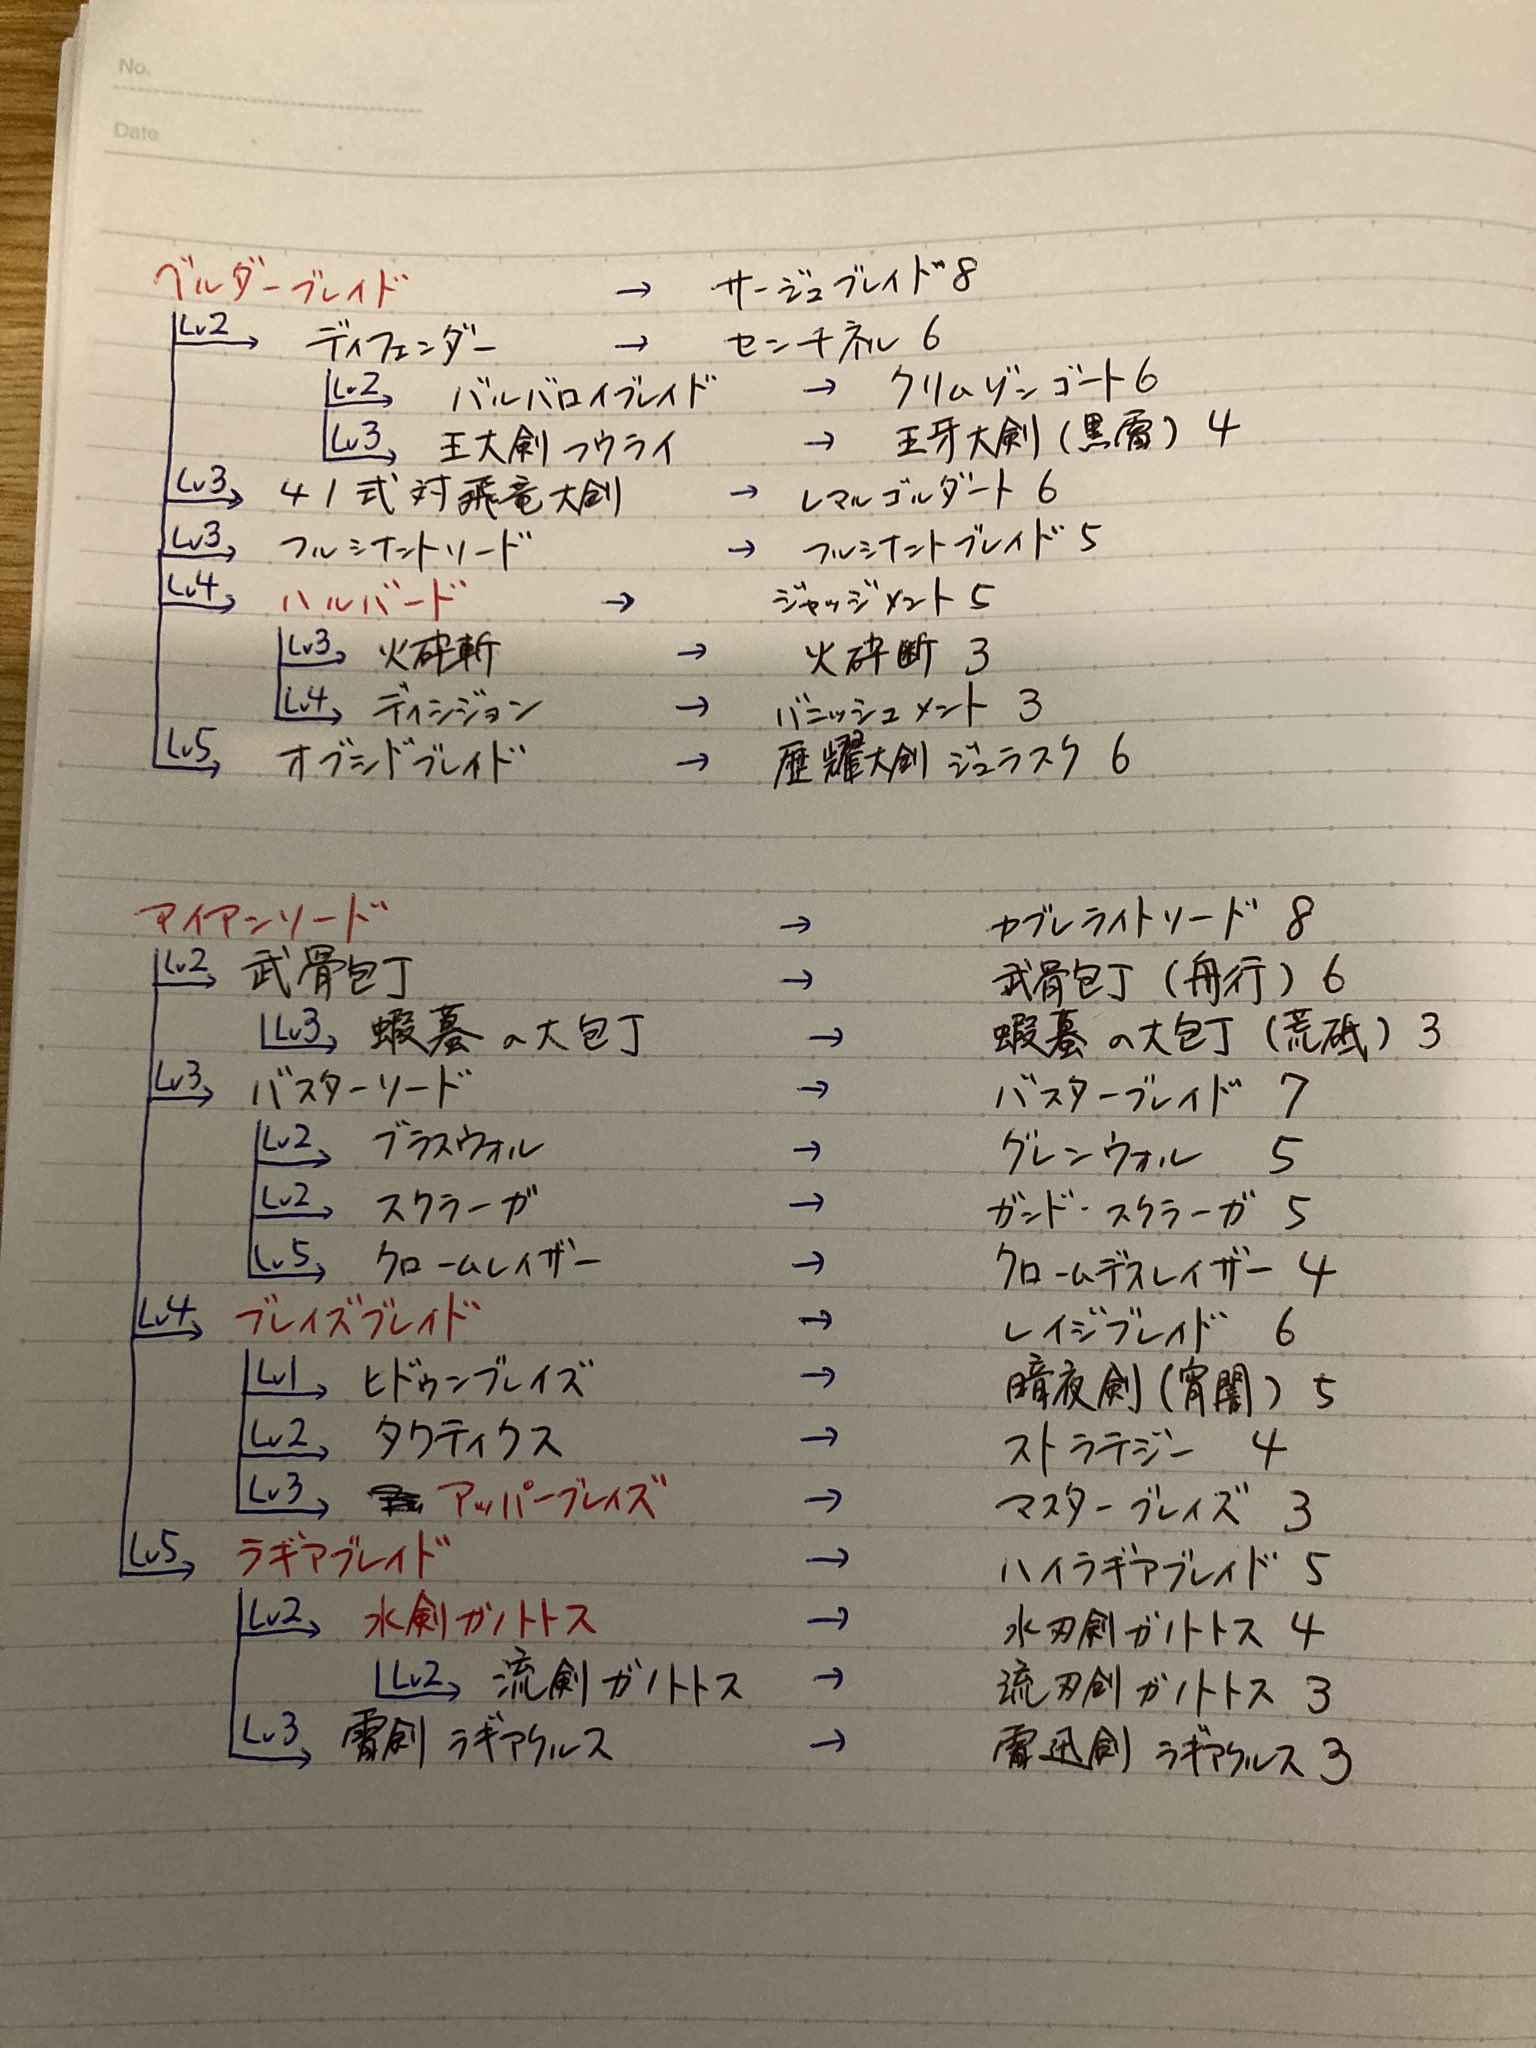 No.
Date
ベルダーブレイド → サージュブレイド 8
Lv2 ディフェンダー → センチネル 6
Lv2 バルバロイブレイド → クリムゾンゴート 6
Lv3 王大剣フウライ → 王牙大剣(黒雷) 4
Lv3 41式対飛竜大剣 → レマルゴルダート 6
Lv3 フルミナントソード → フルミナントブレイド 5
Lv4 ハルバード → ジャッジメント 5
Lv3 火砕斬 → 火砕断 3
Lv4 ディシジョン → バニッシュメント 3
Lv5 オブシドブレイド → 歴耀大剣 ジュラスク 6
アイアンソード → カブレライトソード 8
Lv2 武骨包丁 → 武骨包丁(舟行) 6
Lv3 蝦蟇の大包丁 → 蝦蟇の大包丁(荒砥) 3
Lv3 バスターソード → バスターブレイド 7
Lv2 ブラスウォル → グレンウォル 5
Lv2 スクラーガ → ガンド・スクラーガ 5
Lv5 クロームレイザー → クロームデスレイザー 4
Lv4 ブレイズブレイド → レイジブレイド 6
Lv1 ヒドゥンブレイズ → 暗夜剣(宵闇) 5
Lv2 タクティクス → ストラテジー 4
Lv3 アッパーブレイズ → マスターブレイズ 3
Lv5 ラギアブレイド → ハイラギアブレイド 5
Lv2 水剣ガノトトス → 水刃剣ガノトトス 4
Lv2 流剣ガノトトス → 流刃剣ガノトトス 3
Lv3 雷剣ラギアクルス → 雷迅剣ラギアクルス 3